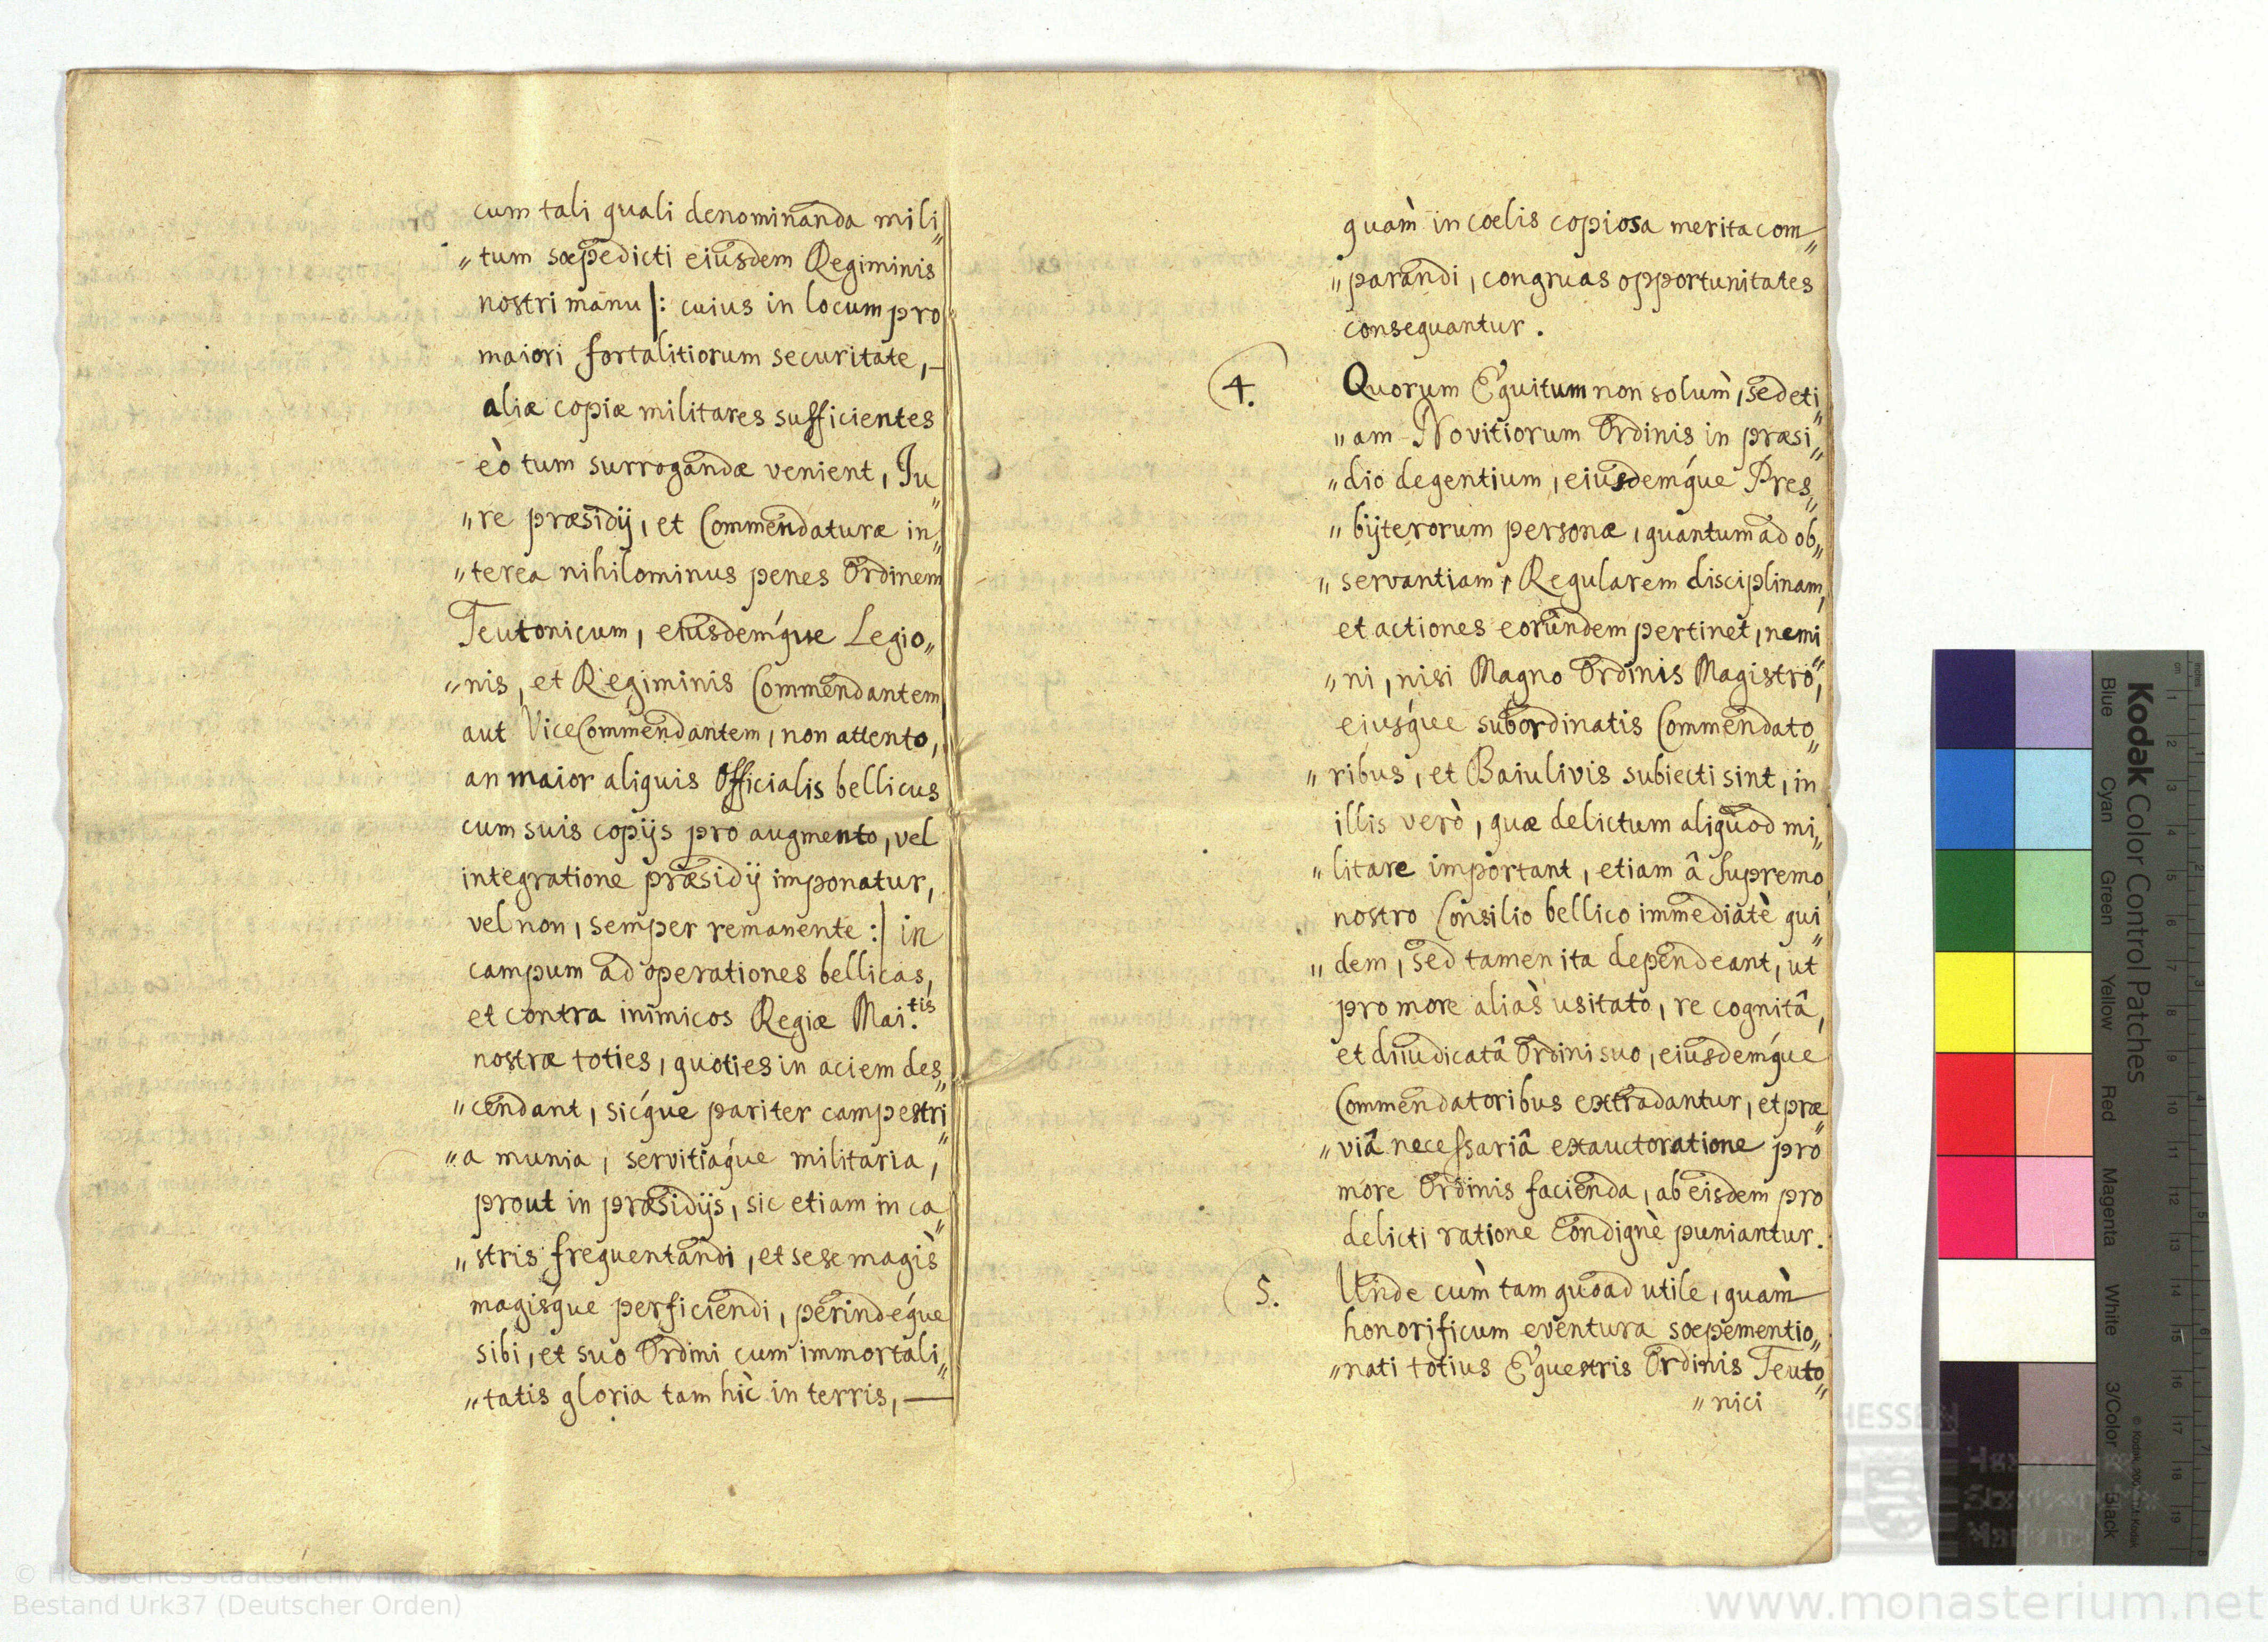 cum tali quali denominanda mili„
„tum sæpedicti eiusdem Regiminis
nostri manu |: cuius in locum pro
maiori fortalitiorum securitate, —
aliæ copiæ militares sufficientes
eò tum surrogandæ venient, Ju„
„re præsidij, et Commendaturæ in„
„terea nihilominus penes Ordinem
Teutonicum, eiusdemq́ue Legio„
„nis, et Regiminis Commendantem
aut ViceCommendantem, non attento,
an maior aliquis Officialis bellicus
cum suis copijs pro augmento, vel
integratione præsidij imponatur,
vel non, semper remanente :| in
campum ad operationes bellicas,
et contra inimicos Regiæ Mai.tis
nostræ toties, quoties in aciem des„
„cendant, sicq́ue pariter campestri„
„a munia, servitiaq́ue militaria,
prout in præsidijs, sic etiam in ca„
„stris frequentandi, et sese magis̀
magisq́ue perficiendi, perindeq́ue
sibi, et suo Ordini cum immortali„
„tatis gloria tam hìc in terris, —
quam̀ in coelis copiosa merita com„
„parandi, congruas opportunitates
consequantur.
4. Quorum Equitum non solum̀, sed eti„
„am Novitiorum Ordinis in præsi„
„dio degentium, eiusdemq́ue Pres„
„bÿterorum personæ, quantum ad ob„
„servantiam, Regularem disciplinam,
et actiones eorundem pertinet, nemi„
„ni, nisi Magno Ordinis Magistro,
eiusq́ue subordinatis Commendato„
„ribus, et Baiulivis subiecti sint, in
illis verò, quæ delictum aliquod mi„
„litare important, etiam â Supremo
nostro Consilio bellico immediatè qui„
„dem, sed tamen ita dependeant, ut
pro more alias̀ usitato, re cognitâ,
et diiudicatâ Ordini suo, eiusdemq́ue
Commendatoribus extradantur, et præ„
„viâ necessariâ exauctoratione pro
more Ordinis facienda, ab eisdem pro
delicti ratione condignè puniantur.
5. Unde cum̀ tam quoad utile, quam̀
honorificum eventura sæpementio„
„nati totius Equestris Ordinis Teuto„
„nici
Kodak Color Control Patches
Blue Cyan Green Yellow Red Magenta White 3/Color Black
HESSEN
© Hessisches Staatsarchiv Marburg
Bestand Urk37 (Deutscher Orden)
www.monasterium.net